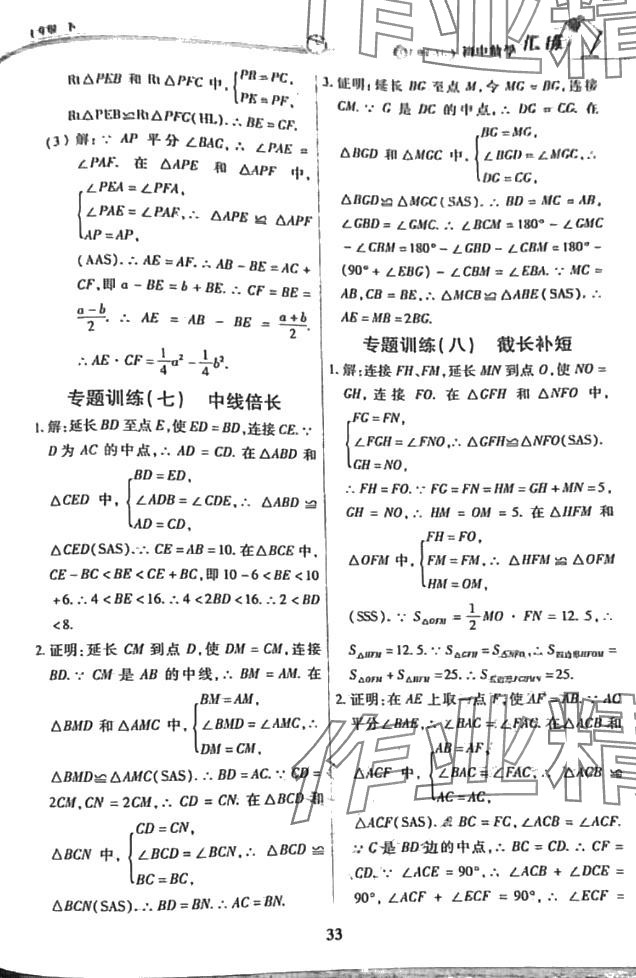 初中数学 汇练
Rt△PEB 和 Rt△PFC 中,{PB=PC,
PE=PF,
Rt△PEB≌Rt△PFC(HL).∴BE=CF.
(3)解:∵ AP 平分∠BAC,∴ ∠PAE=
∠PAF. 在 △APE 和 △APF 中,
{∠PEA=∠PFA,
∠PAE=∠PAF,∴ △APE ≌ △APF
AP=AP,
(AAS).∴AE=AF.∴AB-BE=AC+
CF,即 a-BE=b+BE.∴CF=BE=
(a-b)/2. ∴ AE = AB - BE = (a+b)/2.
∴AE·CF=1/4a²-1/4b².
专题训练(七) 中线倍长
1.解:延长 BD 至点 E,使 ED=BD,连接 CE.∵
D 为 AC 的中点,∴ AD=CD. 在△ABD 和
△CED 中,{BD=ED,
∠ADB=∠CDE,∴ △ABD ≌
AD=CD,
△CED(SAS).∴CE=AB=10.在△BCE 中,
CE-BC<BE<CE+BC,即 10-6<BE<10
+6.∴4<BE<16.∴4<2BD<16.∴2<BD
<8.
2.证明:延长 CM 到点 D,使 DM=CM,连接
BD.∵ CM 是 AB 的中线,∴ BM=AM. 在
△BMD 和 △AMC 中,{BM=AM,
∠BMD=∠AMC,∴
DM=CM,
△BMD≌△AMC(SAS).∴BD=AC.∵CD=
2CM,CN=2CM,∴CD=CN.在△BCD 和
△BCN 中,{CD=CN,
∠BCD=∠BCN,∴ △BCD ≌
BC=BC,
△BCN(SAS).∴BD=BN.∴AC=BN.
3.证明:延长 BG 至点 M,令 MG=BG,连接
CM.∵ G 是 DC 的中点,∴ DG=CG. 在
△BGD 和△MGC 中,{BG=MG,
∠BGD=∠MGC,∴
DG=CG,
△BGD≌△MGC(SAS).∴BD=MC=AB,
∠GBD=∠GMC.∴∠BCM=180°-∠GMC
-∠CBM=180°-∠GBD-∠CBM=180°-
(90°+∠EBG)-∠CBM=∠EBA.∵ MC=
AB,CB=BE,∴ △MCB≌△ABE(SAS).∴
AE=MB=2BG.
专题训练(八) 截长补短
1.解:连接 FH、FM,延长 MN 到点 O,使 NO=
GH,连接 FO. 在 △GFH 和 △NFO 中,
{FG=FN,
∠FGH=∠FNO,∴△GFH≌△NFO(SAS).
GH=NO,
∴FH=FO.∵FG=FN=HM=GH+MN=5,
GH=NO,∴ HM=OM=5. 在△HFM 和
△OFM 中,{FH=FO,
FM=FM,∴ △HFM ≌ △OFM
HM=OM,
(SSS).∵ S△OFM=1/2MO·FN=12.5,∴
S△HFM=12.5.∵S△GFH=S△NFO,∴S四边形HFOM=
S△OFM+S△HFM=25.∴S五边形FGHMN=25.
2.证明:在 AE 上取一点 F,使 AF=AB.∵ AC
平分∠BAE,∴∠BAC=∠FAC.在△ACB 和
△ACF 中,{AB=AF,
∠BAC=∠FAC,∴ △ACB ≌
AC=AC,
△ACF(SAS).∴ BC=FC,∠ACB=∠ACF.
∵ C 是 BD 边的中点,∴ BC=CD.∴ CF=
CD.∵∠ACE=90°,∴∠ACB+∠DCE=
90°,∠ACF+∠ECF=90°,∴∠ECF=
33
作业精
作业精
作业精